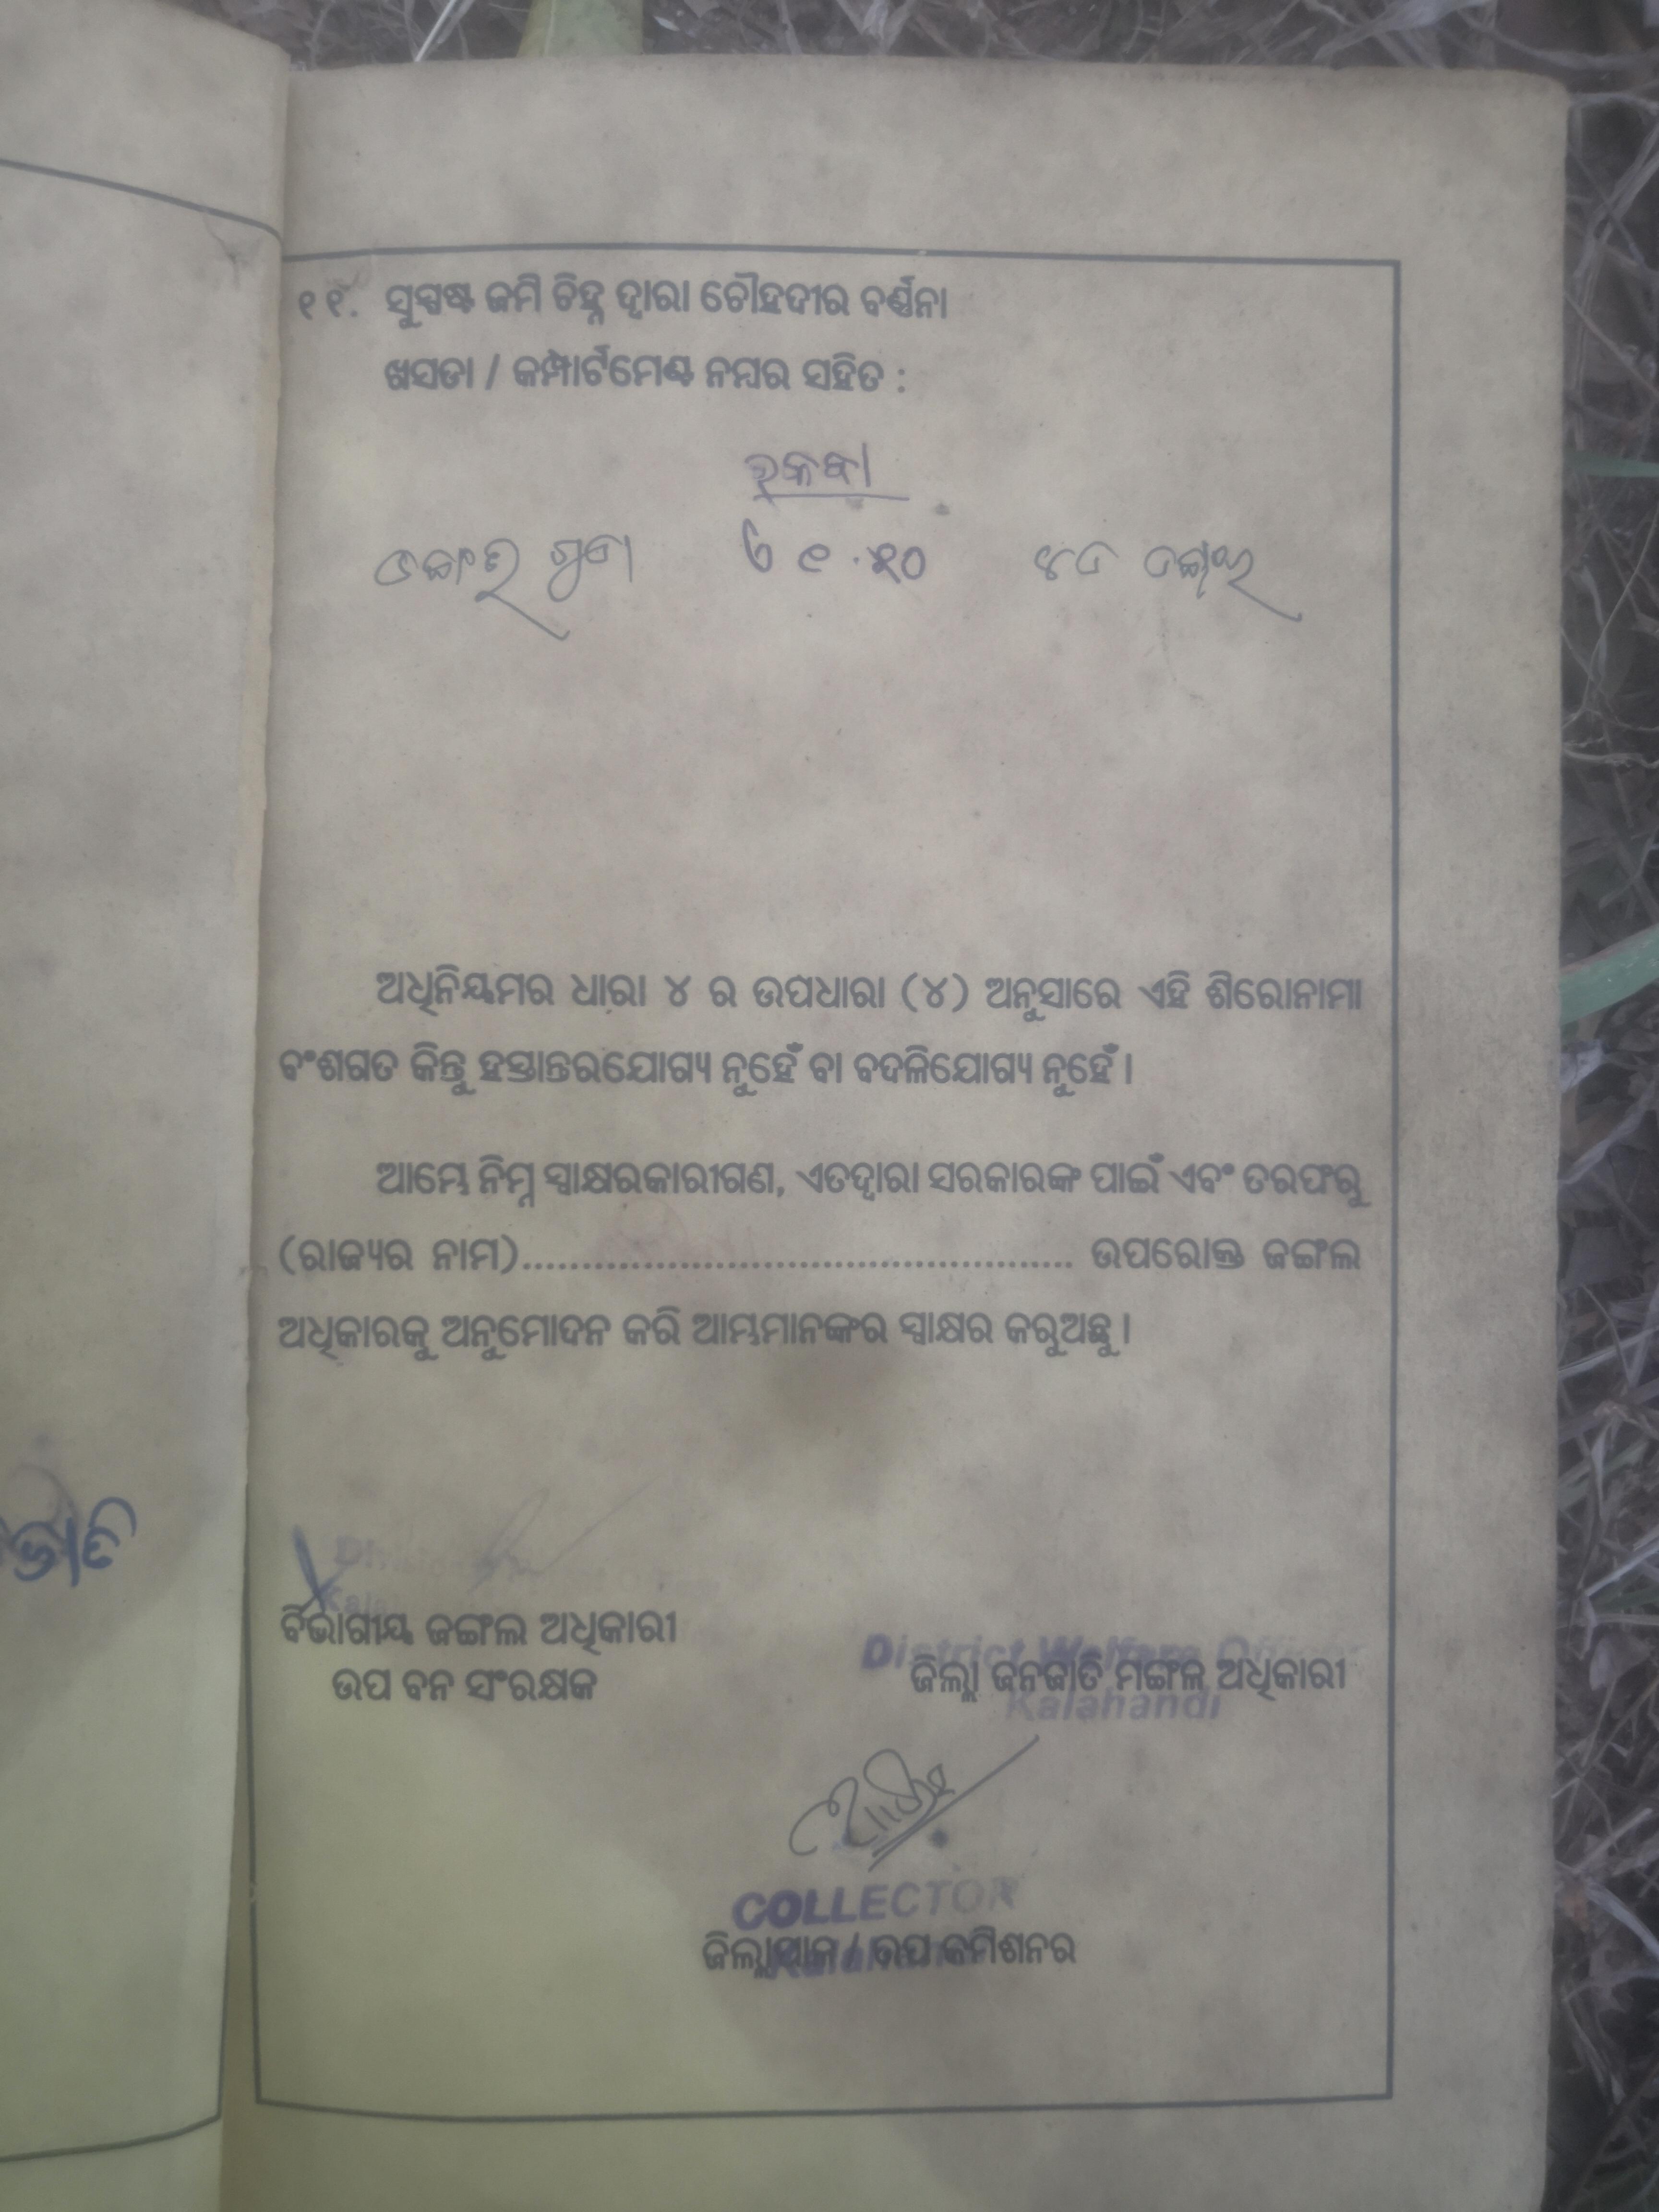 ୧୧. ସୁସ୍ପଷ୍ଟ ଜମି ଚିହ୍ନ ଦ୍ୱାରା ଚୌହଦୀର ବର୍ଣ୍ଣନା
ଖସଡା / କମ୍ପାର୍ଟମେଣ୍ଟ ନମ୍ବର ସହିତ :
ରକବା
ଅଧିନିୟମର ଧାରା ୪ ର ଉପଧାରା (୪) ଅନୁସାରେ ଏହି ଶିରୋନାମା
ବଂଶଗତ କିନ୍ତୁ ହସ୍ତାନ୍ତରଯୋଗ୍ୟ ନୁହେଁ ବା ବଦଳିଯୋଗ୍ୟ ନୁହେଁ ।
ଆମ୍ଭେ ନିମ୍ନ ସ୍ୱାକ୍ଷରକାରୀଗଣ, ଏତଦ୍ୱାରା ସରକାରଙ୍କ ପାଇଁ ଏବଂ ତରଫରୁ
(ରାଜ୍ୟର ନାମ)................................................ ଉପରୋକ୍ତ ଜଙ୍ଗଲ
ଅଧିକାରକୁ ଅନୁମୋଦନ କରି ଆମ୍ଭମାନଙ୍କର ସ୍ୱାକ୍ଷର କରୁଅଛୁ ।
ବିଭାଗୀୟ ଜଙ୍ଗଲ ଅଧିକାରୀ
ଉପ ବନ ସଂରକ୍ଷକ
District Welfare Officer
ଜିଲ୍ଲା ଜନଜାତି ମଙ୍ଗଳ ଅଧିକାରୀ
Kalahandi
COLLECTOR
ଜିଲ୍ଲାପାଳ / ଉପ କମିଶନର